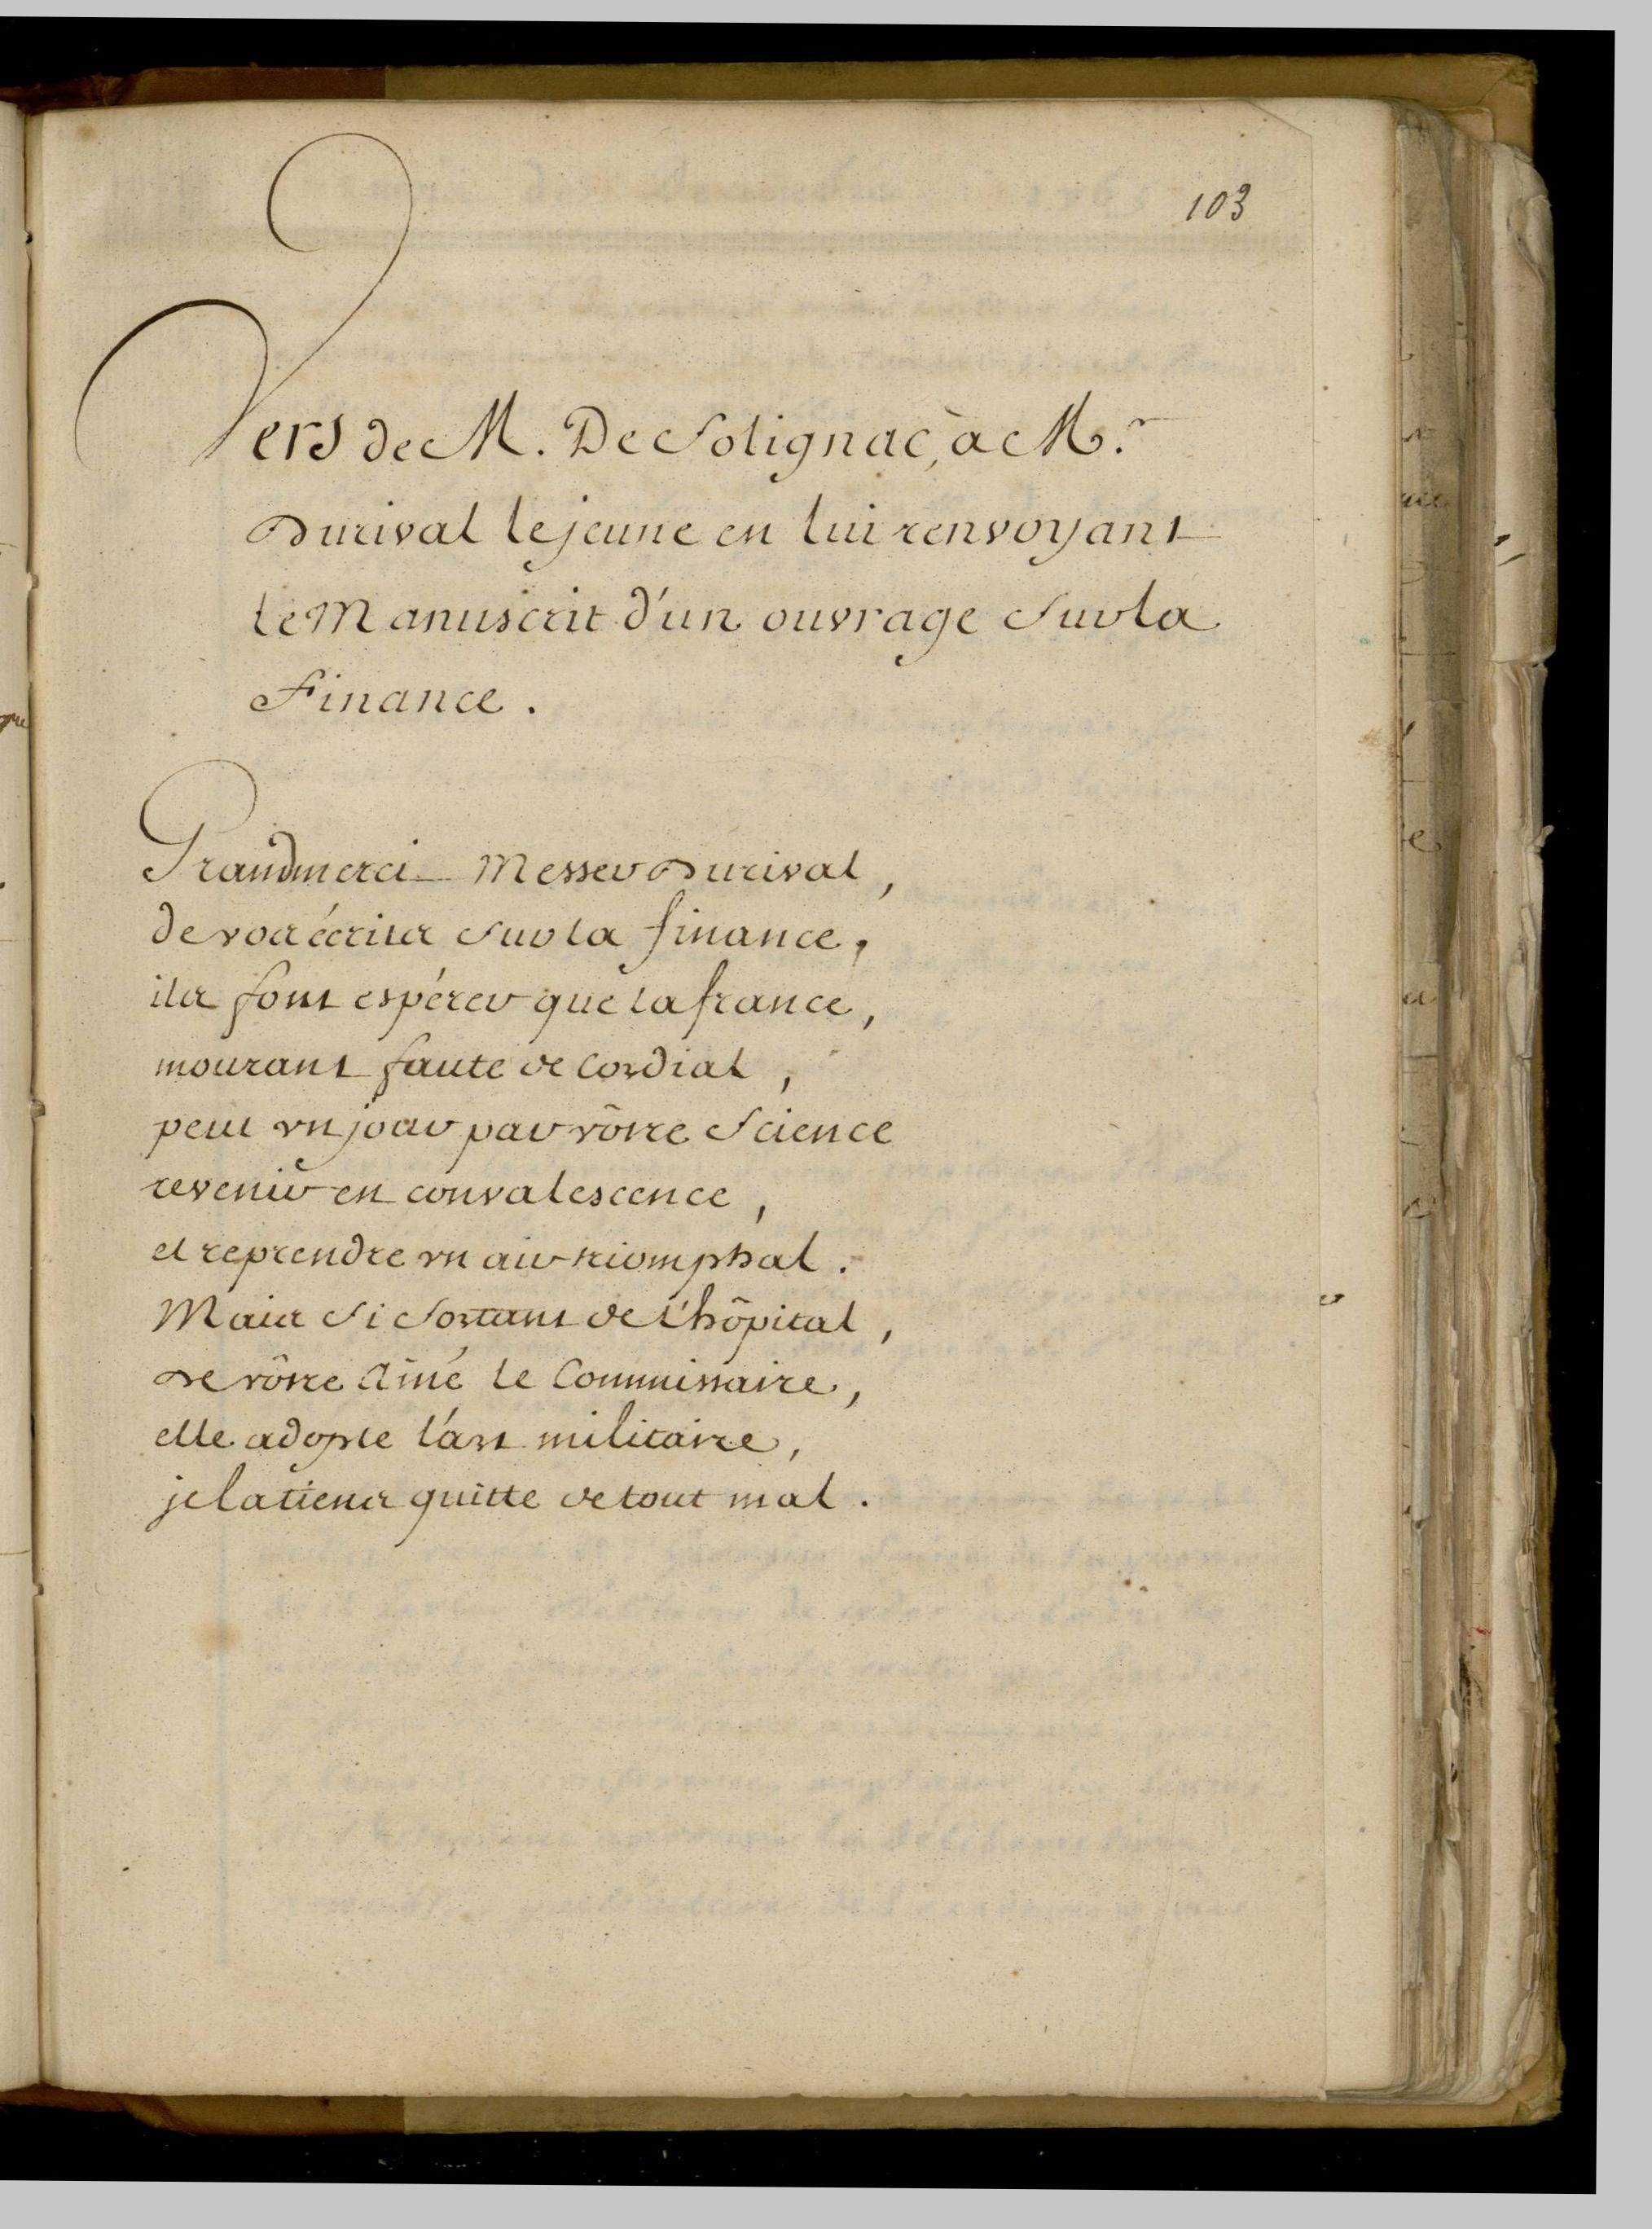 103
Vers de M. De Solignac, à Mr.
Durival le jeune en lui renvoyant
le Manuscrit d'un ouvrage sur la
Finance.
Grandmerci Messer Durival,
de vos écrits sur la finance,
ils font espérer que la france,
mourant faute de Cordial,
peut un jour par vôtre Science
revenir en convalescence,
et reprendre un air triomphal.
Mais si sortant de l'hôpital,
de vôtre Ainé le Commissaire,
elle adopte l'art militaire,
je la tiens quitte de tout mal.